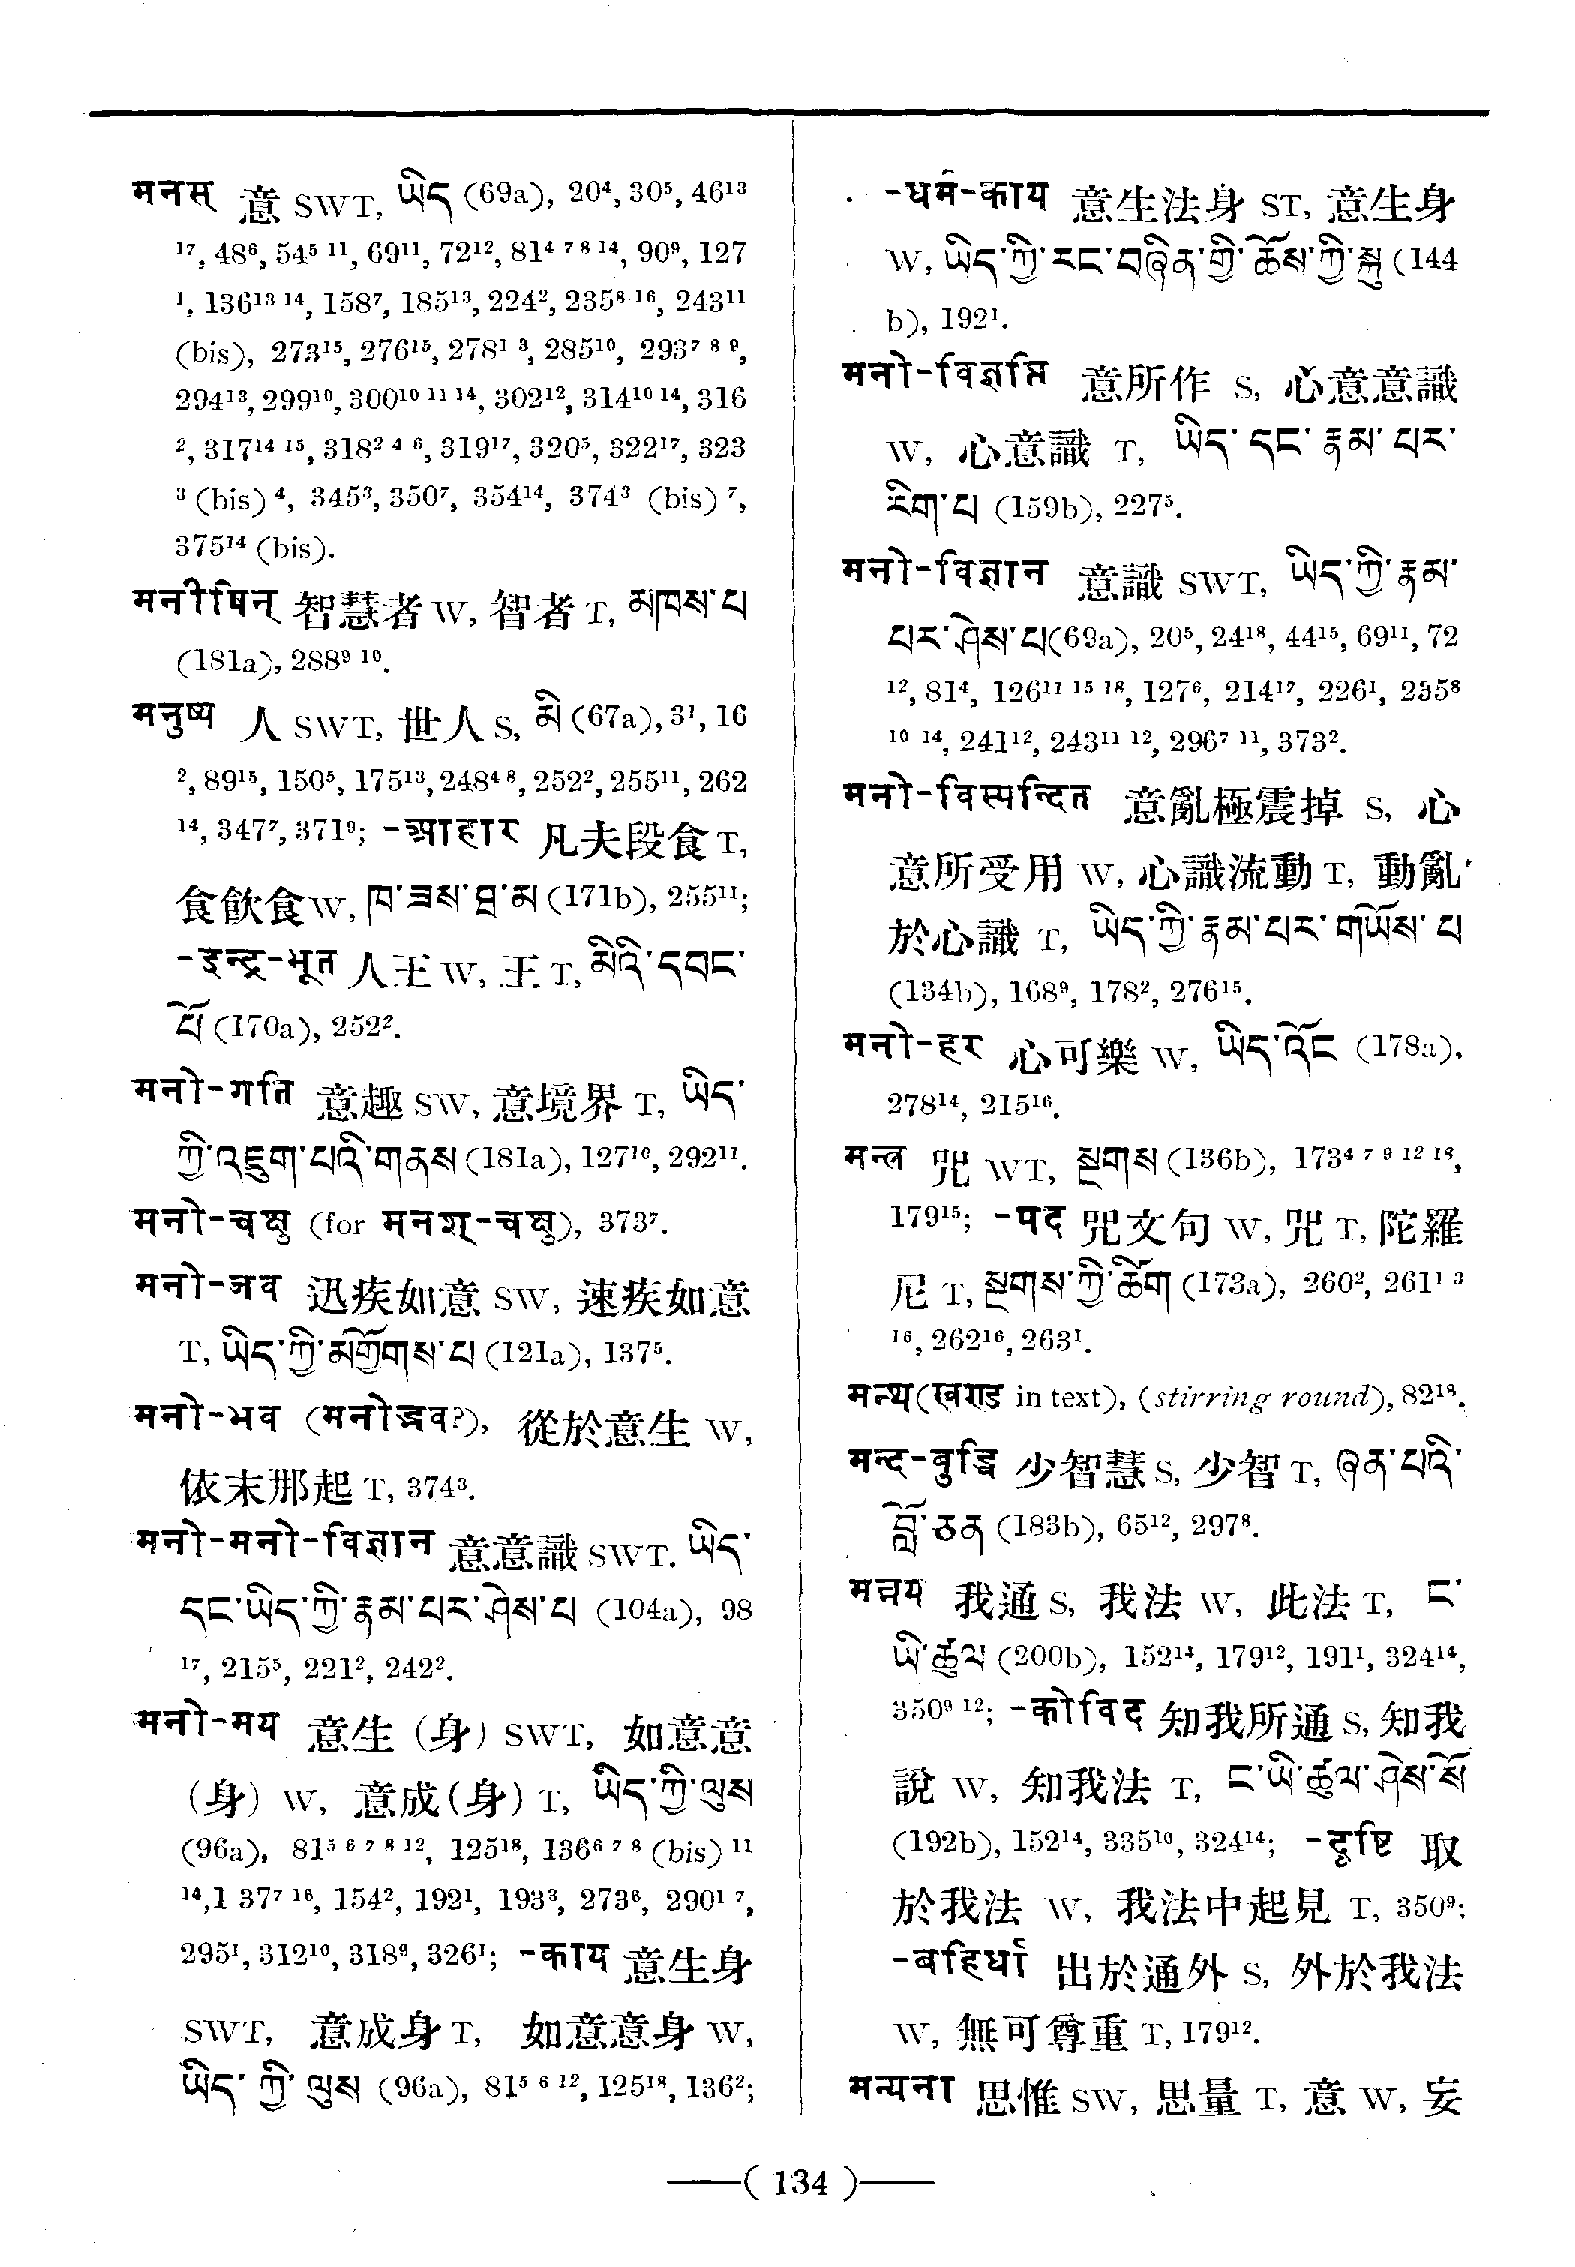 मनस् 意 SWT, ཡིད (69a), 20⁴, 30⁵, 46¹³
¹⁷, 48⁶, 54⁵ ¹¹, 69¹¹, 72¹², 81⁴ ⁷ ⁸ ¹⁴, 90⁹, 127
¹, 136¹³ ¹⁴, 158⁷, 185¹³, 224², 235⁸ ¹⁶, 243¹¹
(bis), 273¹⁵, 276¹⁵, 278¹ ³, 285¹⁰, 293⁷ ⁸ ⁹,
294¹³, 299¹⁰, 300¹⁰ ¹¹ ¹⁴, 302¹², 314¹⁰ ¹⁴, 316
², 317¹⁴ ¹⁵, 318² ⁴ ⁶, 319¹⁷, 320⁵, 322¹⁷, 323
³ (bis) ⁴, 345³, 350⁷, 354¹⁴, 374³ (bis) ⁷,
375¹⁴ (bis).
मनीषिन् 智慧者 W, 智者 T, མཁས་པ
(181a), 288⁹ ¹⁰.
मनुष्य 人 SWT, 世人 S, མི (67a), 3¹, 16
², 89¹⁵, 150⁵, 175¹³, 248⁴ ⁸, 252², 255¹¹, 262
¹⁴, 347⁷, 371⁹; -आहार 凡夫段食 T,
食飲食 W, ཁ་ཟས་ཐ་མ (171b), 255¹¹;
-इन्द्र-भूत 人王 W, 王 T, མིའི་དབང་
པོ (170a), 252².
मनो-गति 意趣 SW, 意境界 T, ཡིད་
ཀྱི་འཇུག་པའི་གནས (181a), 127¹⁰, 292¹¹.
मनो-चक्षु (for मनश्-चक्षु), 373⁷.
मनो-जव 迅疾如意 SW, 速疾如意
T, ཡིད་ཀྱི་མགྱོགས་པ (121a), 137⁵.
मनो-भव (मनोद्भव?), 從於意生 W,
依末那起 T, 374³.
मनो-मनो-विज्ञान 意意識 SWT. ཡིད་
དང་ཡིད་ཀྱི་རྣམ་པར་ཤེས་པ (104a), 98
¹⁷, 215⁵, 221², 242².
मनो-मय 意生 (身) SWT, 如意意
(身) W, 意成(身) T, ཡིད་ཀྱི་ལུས
(96a), 81⁵ ⁶ ⁷ ⁸ ¹², 125¹⁸, 136⁶ ⁷ ⁸ (bis) ¹¹
¹⁴,1 37⁷ ¹⁶, 154², 192¹, 193³, 273⁶, 290¹ ⁷,
295¹, 312¹⁰, 318⁹, 326¹; -काय 意生身
SWT, 意成身 T, 如意意身 W,
ཡིད་ཀྱི་ལུས (96a), 81⁵ ⁶ ¹², 125¹⁸, 136²;
-धर्म-काय 意生法身 ST, 意生身
W, ཡིད་ཀྱི་རང་བཞིན་གྱི་ཆོས་ཀྱི་སྐུ (144
b), 192¹.
मनो-विज्ञप्ति 意所作 S, 心意意識
W, 心意識 T, ཡིད་དང་རྣམ་པར་
རིག་པ (159b), 227⁵.
मनो-विज्ञान 意識 SWT, ཡིད་ཀྱི་རྣམ་
པར་ཤེས་པ(69a), 20⁵, 24¹⁸, 44¹⁵, 69¹¹, 72
¹², 81⁴, 126¹¹ ¹⁵ ¹⁸, 127⁶, 214¹⁷, 226¹, 235⁸
¹⁰ ¹⁴, 241¹², 243¹¹ ¹², 296⁷ ¹¹, 373².
मनो-विस्पन्दित 意亂極震掉 S, 心
意所受用 W, 心識流動 T, 動亂
於心識 T, ཡིད་ཀྱི་རྣམ་པར་གཡོས་པ
(134b), 168⁹, 178², 276¹⁵.
मनो-हर 心可樂 W, ཡིད་འོང (178a),
278¹⁴, 215¹⁶.
मन्त्र 咒 WT, སྔགས (136b), 173⁴ ⁷ ⁹ ¹² ¹⁸,
179¹⁵; -पद 咒文句 W, 咒 T, 陀羅
尼 T, སྔགས་ཀྱི་ཚིག (173a), 260², 261¹ ³
¹⁶, 262¹⁶, 263¹.
मन्थ(खण्ड in text), (stirring round), 82¹⁸.
मन्द-बुद्धि 少智慧 S, 少智 T, ཞན་པའི་
བློ་ཅན (183b), 65¹², 297⁸.
मन्नय 我通 S, 我法 W, 此法 T, ང་
ཡི་ཚུལ (200b), 152¹⁴, 179¹², 191¹, 324¹⁴,
350⁹ ¹²; -कोविद 知我所通 S, 知我
說 W, 知我法 T, ང་ཡི་ཚུལ་ཤེས་སོ
(192b), 152¹⁴, 335¹⁰, 324¹⁴; -दृष्टि 取
於我法 W, 我法中起見 T, 350⁹;
-बहिर्धा 出於通外 S, 外於我法
W, 無可尊重 T, 179¹².
मन्यना 思惟 SW, 思量 T, 意 W, 妄
( 134 )